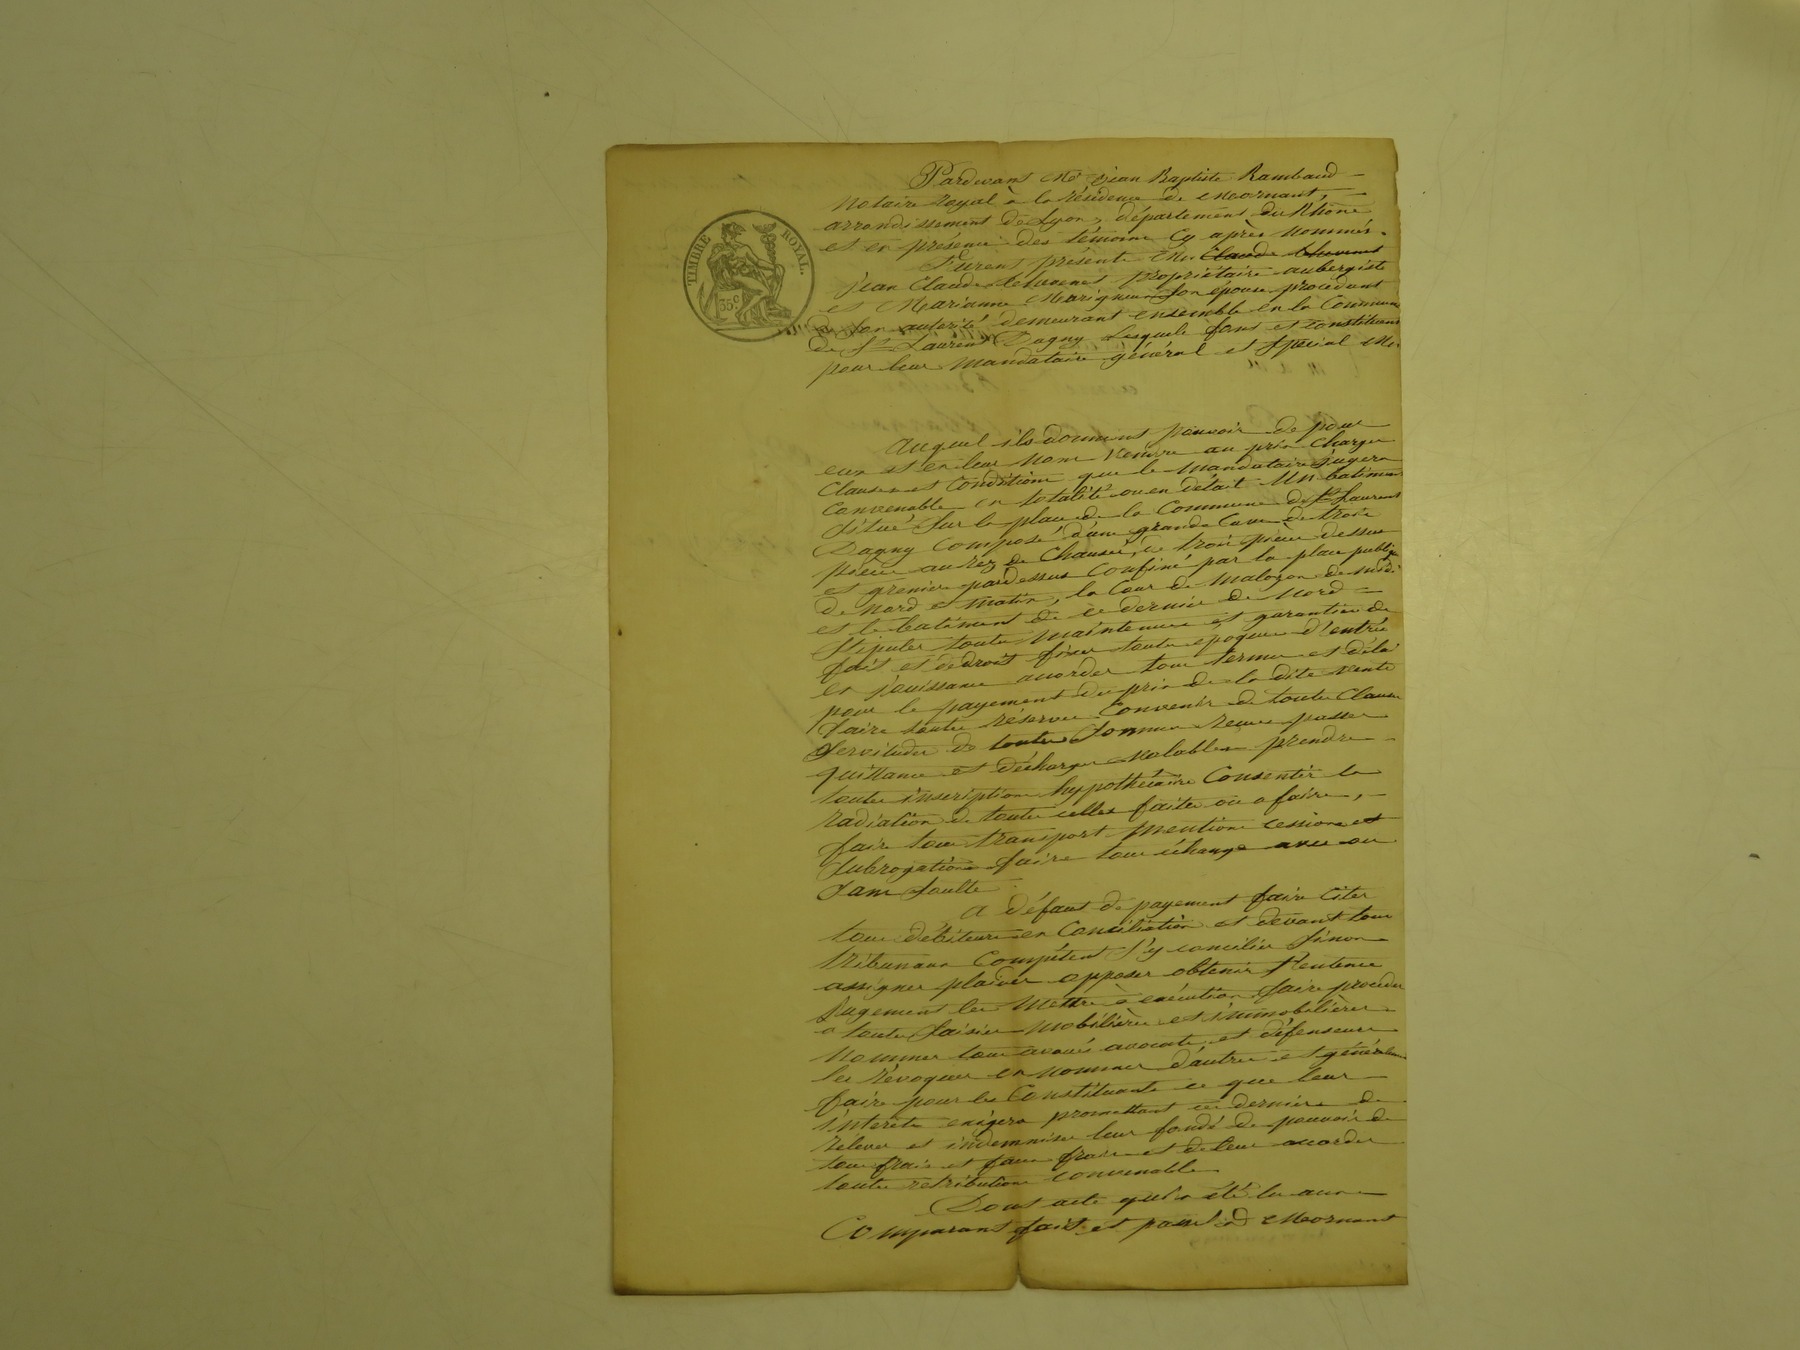 TIMBRE ROYAL.
35c
Pardevant Me Jean Baptiste Rambaud
Notaire royal à la résidence de Mornant,
arrondissement de Lyon, département du Rhône
et en présence des témoins cy après nommés.
Furent présents Mr Claude Thevenet
Jean Claude Thevenet propriétaire aubergiste
et Marianne son épouse procédant
de son autorité demeurant ensemble en la Commune
de St Laurent Dagny Lesquels font et constituent
pour leur mandataire général et spécial Mr
auquel ils donnent pouvoir de pour
eux et en leur nom vendre au prix charges
clauses et conditions que le mandataire jugera
convenable en totalité ou en détail Un batiment
situé sur la place de la Commune de St Laurent
Dagny composé d'une grande Cave de trois
pièces au rez de chaussé, de trois pièces dessus
et grenier pardessus confiné par la place publique
de nord et matin, la Cour de de midi
et le batiment de ce dernier de Nord
stipuler toutes maintenues et garanties de
fait et de droit fixer toute époque d'entrée
en jouissance accorder tous termes et délai
pour le payement du prix de la dite vente
faire toutes réserves Convenir de toutes clauses
servitudes de toutes sommes reçues passer
quittance et décharges valables prendre
toutes inscriptions hypothécaire Consentir la
radiation de toutes celles faites ou a faire,
faire tous transport mentions cessions et
subrogations faire tous échange avec ou
sans soulte
A défaut de payement faire citer
tous débiteurs en Conciliation et devant tous
tribunaux Compétent s'y concilier sinon
assigner plaider opposer obtenir sentence
Jugement les mettre à exécution faire procéder
a toutes saisies mobilières et immobilières
Nommer tous avoués avocats et défenseurs
les révoquer en nommer d'autres et généralement
faire pour les Constituants ce que leur
intérêts exigera promettant ces derniers de
relever et indemniser leur fondé de pouvoir de
tous frais et faux frais et de leur accorder
toutes rétribution convenable
Dont acte qui a été lu aux
Comparant fait et passé à Mornant